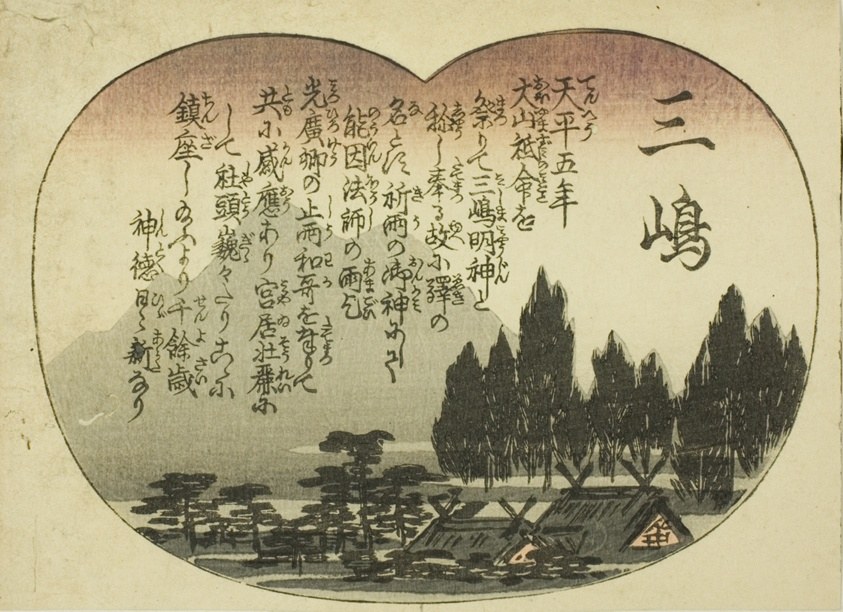 三嶋
天平五年
大山祇命を
祭りて三嶋明神と
称し奉る故に驛の
名とす祈雨の御神にして
能因法師の雨乞
光廣卿の止雨和哥を奉りて
共に感應あり宮居壮麗に
して社頭巍々たり
鎮座し給ふより千餘歳
神徳日々新なり